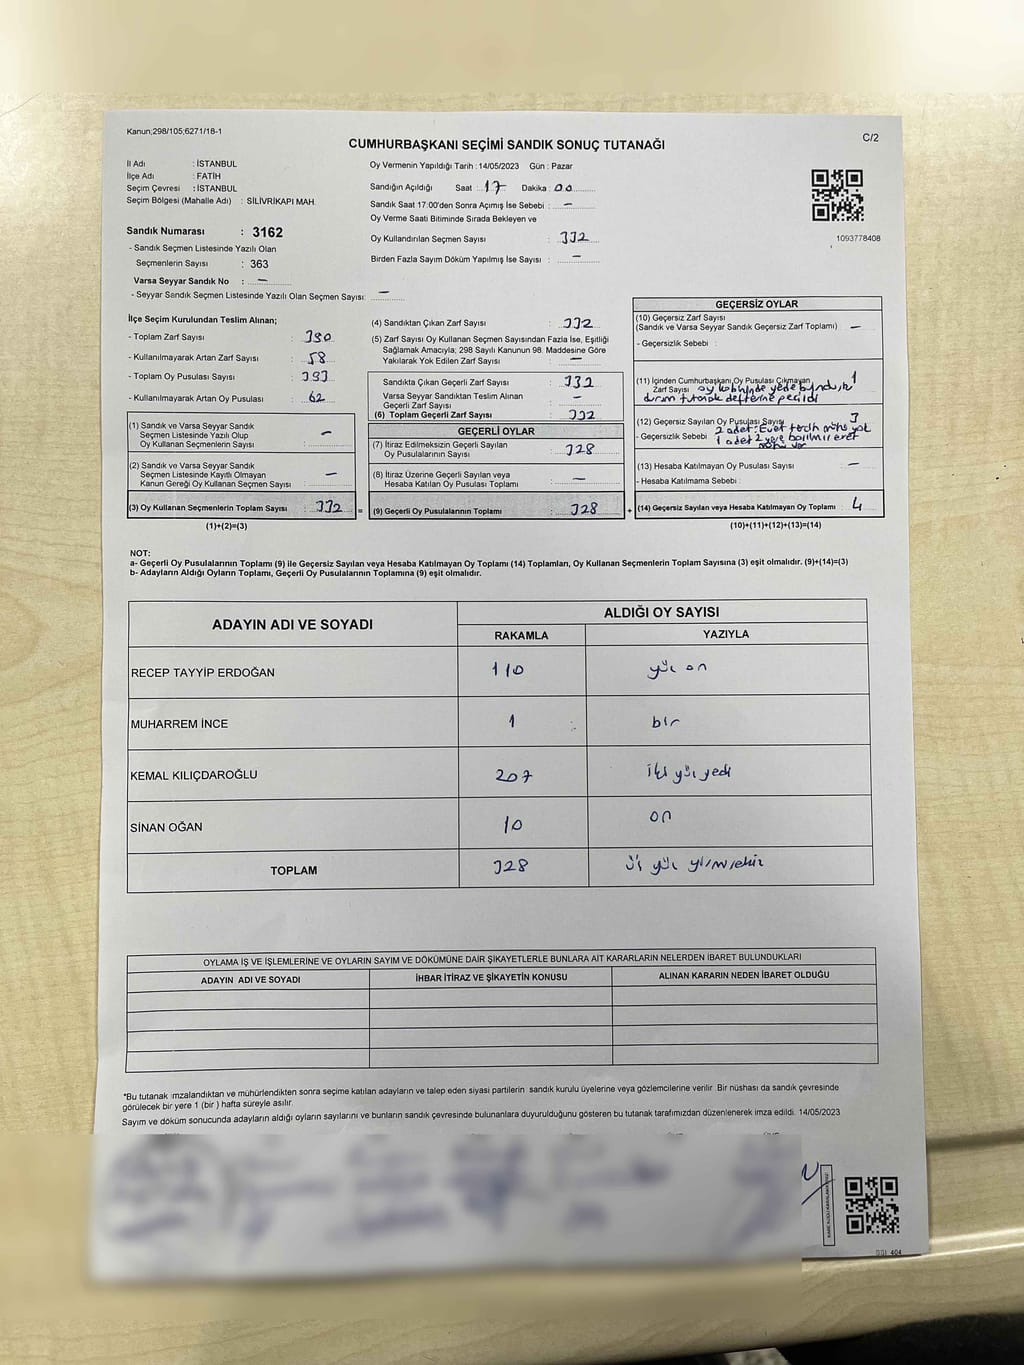 Kanun;298/105;6271/18-1
C/2
CUMHURBAŞKANI SEÇİMİ SANDIK SONUÇ TUTANAĞI
İl Adı : İSTANBUL
İlçe Adı : FATİH
Seçim Çevresi : İSTANBUL
Seçim Bölgesi (Mahalle Adı) : SİLİVRİKAPI MAH.
Sandık Numarası : 3162
- Sandık Seçmen Listesinde Yazılı Olan
Seçmenlerin Sayısı : 363
Varsa Seyyar Sandık No : —
- Seyyar Sandık Seçmen Listesinde Yazılı Olan Seçmen Sayısı: —
Oy Vermenin Yapıldığı Tarih : 14/05/2023 Gün : Pazar
Sandığın Açıldığı Saat : 17 Dakika : 00
Sandık Saat 17:00'den Sonra Açımış İse Sebebi : —
Oy Verme Saati Bitiminde Sırada Bekleyen ve
Oy Kullandırılan Seçmen Sayısı : 332
Birden Fazla Sayım Döküm Yapılmış İse Sayısı : —
1093778408
İlçe Seçim Kurulundan Teslim Alınan;
- Toplam Zarf Sayısı : 390
- Kullanılmayarak Artan Zarf Sayısı : 58
- Toplam Oy Pusulası Sayısı : 393
- Kullanılmayarak Artan Oy Pusulası : 62
(1) Sandık ve Varsa Seyyar Sandık
Seçmen Listesinde Yazılı Olup
Oy Kullanan Seçmenlerin Sayısı : —
(2) Sandık ve Varsa Seyyar Sandık
Seçmen Listesinde Kayıtlı Olmayan
Kanun Gereği Oy Kullanan Seçmen Sayısı : —
(3) Oy Kullanan Seçmenlerin Toplam Sayısı : 332 =
(1)+(2)=(3)
(4) Sandıktan Çıkan Zarf Sayısı : 332
(5) Zarf Sayısı Oy Kullanan Seçmen Sayısından Fazla İse, Eşitliği
Sağlamak Amacıyla; 298 Sayılı Kanunun 98. Maddesine Göre
Yakılarak Yok Edilen Zarf Sayısı : —
Sandıkta Çıkan Geçerli Zarf Sayısı : 332
Varsa Seyyar Sandıktan Teslim Alınan
Geçerli Zarf Sayısı : —
(6) Toplam Geçerli Zarf Sayısı : 332
GEÇERLİ OYLAR
(7) İtiraz Edilmeksizin Geçerli Sayılan
Oy Pusulalarının Sayısı : 328
(8) İtiraz Üzerine Geçerli Sayılan veya
Hesaba Katılan Oy Pusulası Toplamı : —
(9) Geçerli Oy Pusulalarının Toplamı : 328 +
GEÇERSİZ OYLAR
(10) Geçersiz Zarf Sayısı
(Sandık ve Varsa Seyyar Sandık Geçersiz Zarf Toplamı) : —
- Geçersizlik Sebebi :
(11) İçinden Cumhurbaşkanı Oy Pusulası Çıkmayan
Zarf Sayısı : 1
durum tutanak defterine geçildi
(12) Geçersiz Sayılan Oy Pusulası Sayısı : 3
- Geçersizlik Sebebi : 2 adet: Evet tercih mührü yok
1 adet 2 yere basılmış evet
mührü var
(13) Hesaba Katılmayan Oy Pusulası Sayısı : —
- Hesaba Katılmama Sebebi :
(14) Geçersiz Sayılan veya Hesaba Katılmayan Oy Toplamı : 4
(10)+(11)+(12)+(13)=(14)
NOT:
a- Geçerli Oy Pusulalarının Toplamı (9) ile Geçersiz Sayılan veya Hesaba Katılmayan Oy Toplamı (14) Toplamları, Oy Kullanan Seçmenlerin Toplam Sayısına (3) eşit olmalıdır. (9)+(14)=(3)
b- Adayların Aldığı Oyların Toplamı, Geçerli Oy Pusulalarının Toplamına (9) eşit olmalıdır.
ADAYIN ADI VE SOYADI
ALDIĞI OY SAYISI
RAKAMLA YAZIYLA
RECEP TAYYİP ERDOĞAN 110 yüz on
MUHARREM İNCE 1 bir
KEMAL KILIÇDAROĞLU 207 iki yüz yedi
SİNAN OĞAN 10 on
TOPLAM 328 üç yüz yirmisekiz
OYLAMA İŞ VE İŞLEMLERİNE VE OYLARIN SAYIM VE DÖKÜMÜNE DAİR ŞİKAYETLERLE BUNLARA AİT KARARLARIN NELERDEN İBARET BULUNDUKLARI
ADAYIN ADI VE SOYADI İHBAR İTİRAZ VE ŞİKAYETİN KONUSU ALINAN KARARIN NEDEN İBARET OLDUĞU
*Bu tutanak imzalandıktan ve mühürlendikten sonra seçime katılan adayların ve talep eden siyasi partilerin sandık kurulu üyelerine veya gözlemcilerine verilir. Bir nüshası da sandık çevresinde
görülecek bir yere 1 (bir ) hafta süreyle asılır.
Sayım ve döküm sonucunda adayların aldığı oyların sayılarını ve bunların sandık çevresinde bulunanlara duyurulduğunu gösteren bu tutanak tarafımızdan düzenlenerek imza edildi. 14/05/2023